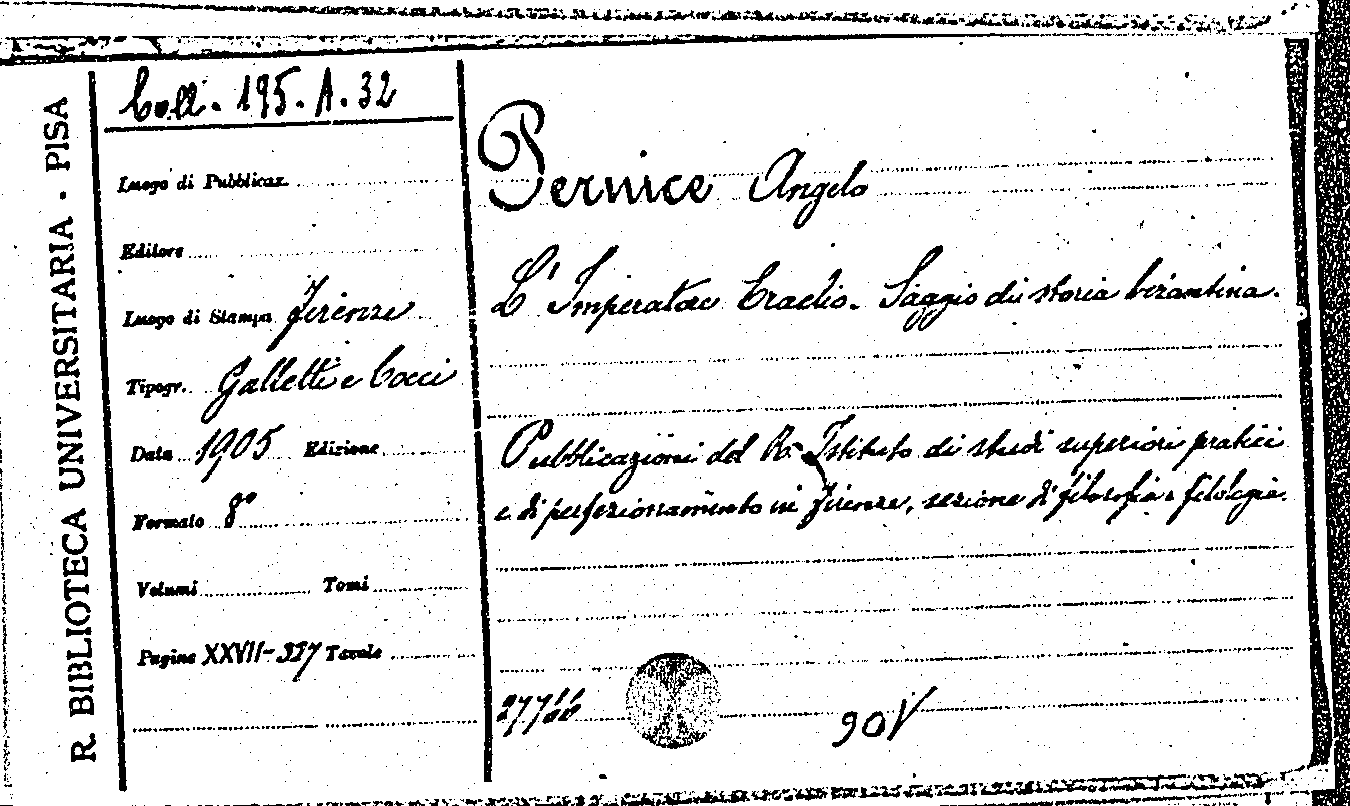 R. BIBLIOTECA UNIVERSITARIA - PISA
Coll. 195. A. 32
Luogo di Pubblicaz.
Editore
Luogo di Stampa Firenze
Tipogr. Galletti e Cocci
Data 1905 Edizione
Formato 8°
Volumi Tomi
Pagine XXVII-327 Tavole
Pernice Angelo
L'Imperatore Eraclio. Saggio di storia bizantina.
Pubblicazioni del R. Istituto di studi superiori pratici
e di perfezionamento in Firenze, sezione di filosofia e filologia.
90V